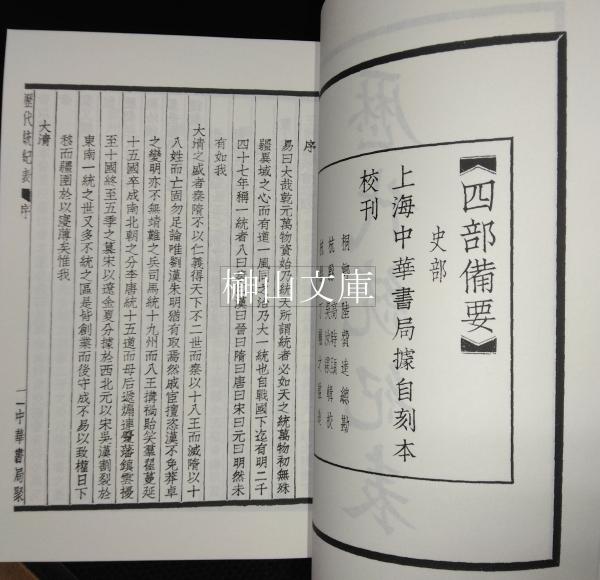 【四部備要】
史部
上海中華書局據自刻本
校刊
桐鄉 陸費逵 總勘
杭縣 高時顯 輯校
序
易曰大哉乾元萬物資始乃統天所謂統者必如天之統萬物初無殊
疆異域之心而有道一風同之治乃大一統也自戰國下迄有明二千
四十七年稱一統者八曰秦曰漢曰晉曰隋曰唐曰宋曰元曰明然未
有如我
大清之盛者秦隋不以仁義得天下不二世而秦以十八王而滅隋以十
八姓而亡固勿足論唯劉漢朱明猶有取焉然戚宦擅恣漢不免莽卓
之變明亦不無靖難之兵司馬統十九州而八王搆禍貽笑羣蔓延
十五國卒成南北朝之分李唐統十五道而母后煽連藩鎮雲擾
至十國終至五季之宋以遼金夏分據於西北元以宋吳漢割裂於
東南一統之世又多不統之區是皆創業而後守成不易以致權日下
移而疆圉於以寖薄矣惟我
大清
歷代統紀表 序
一 中華書局聚
榊山文庫